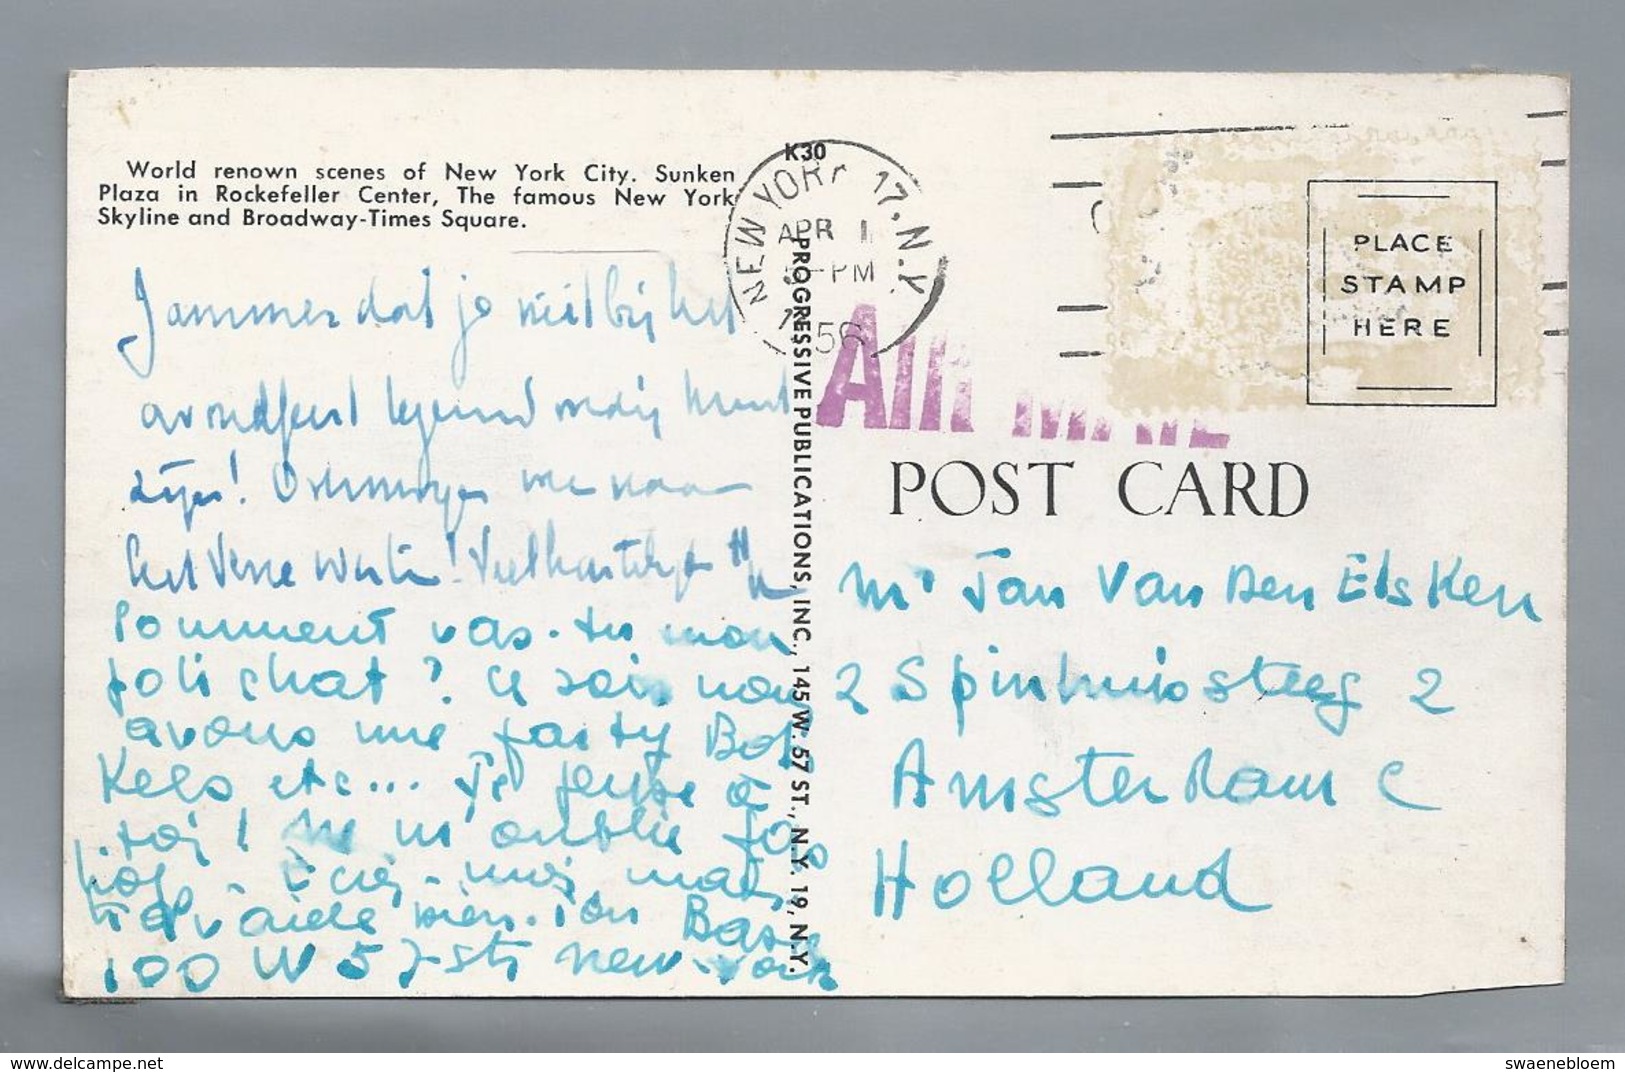 World renown scenes of New York City. Sunken
Plaza in Rockefeller Center, The famous New York
Skyline and Broadway-Times Square.
K30
NEW YORK 17, N.Y.
APR 1
PM
1956
AIR MAIL
PLACE
STAMP
HERE
POST CARD
PROGRESSIVE PUBLICATIONS, INC., 145 W. 57 ST., N.Y. 19, N.Y.
Jammer dat je niet bij het
avondfeest kunt
zijn! Overmorgen we naar
het Verre Westen! Veel hartelijks
Comment vas-tu mon
joli chat? Ce soir nous
avons une party Bob
Kees etc... Je pense à
toi! Ne m'oublie pas
écris-moi
Ton
100 W 57 st New-York
Mr Jan Van Den Elsken
2 2
Amsterdam C
Holland
delcampe.net
swaenebloem